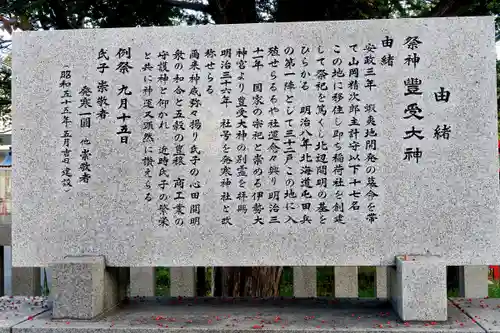 由緒
祭神 豊受大神
由緒
安政三年 蝦夷地開発の墓命を帯
て山岡精次郎主計守以下十七名
この地に移住し即ち稲荷社を創建
して祭祀を篤くし北辺開明の基を
ひらかる 明治八年北海道屯田兵
の第一陣として三十二戸この地に入
殖せらるるや社運今々興り明治三
十一年 国家の宗祀と崇める伊勢大
神宮より豊受大神の別霊を拝賜
明治三十六年 社号を発寒神社と改
称せらる
爾来神威弥々揚り氏子の心田開明
衆の和合と五穀の豊穣 商工業の
守護神と仰かれ 近時氏子の繁栄
と共に神運又頭然に讃えらる
例祭 九月十五日
氏子 崇敬者
発寒一圓 他崇敬者
(昭和五十五年五月吉日建設)